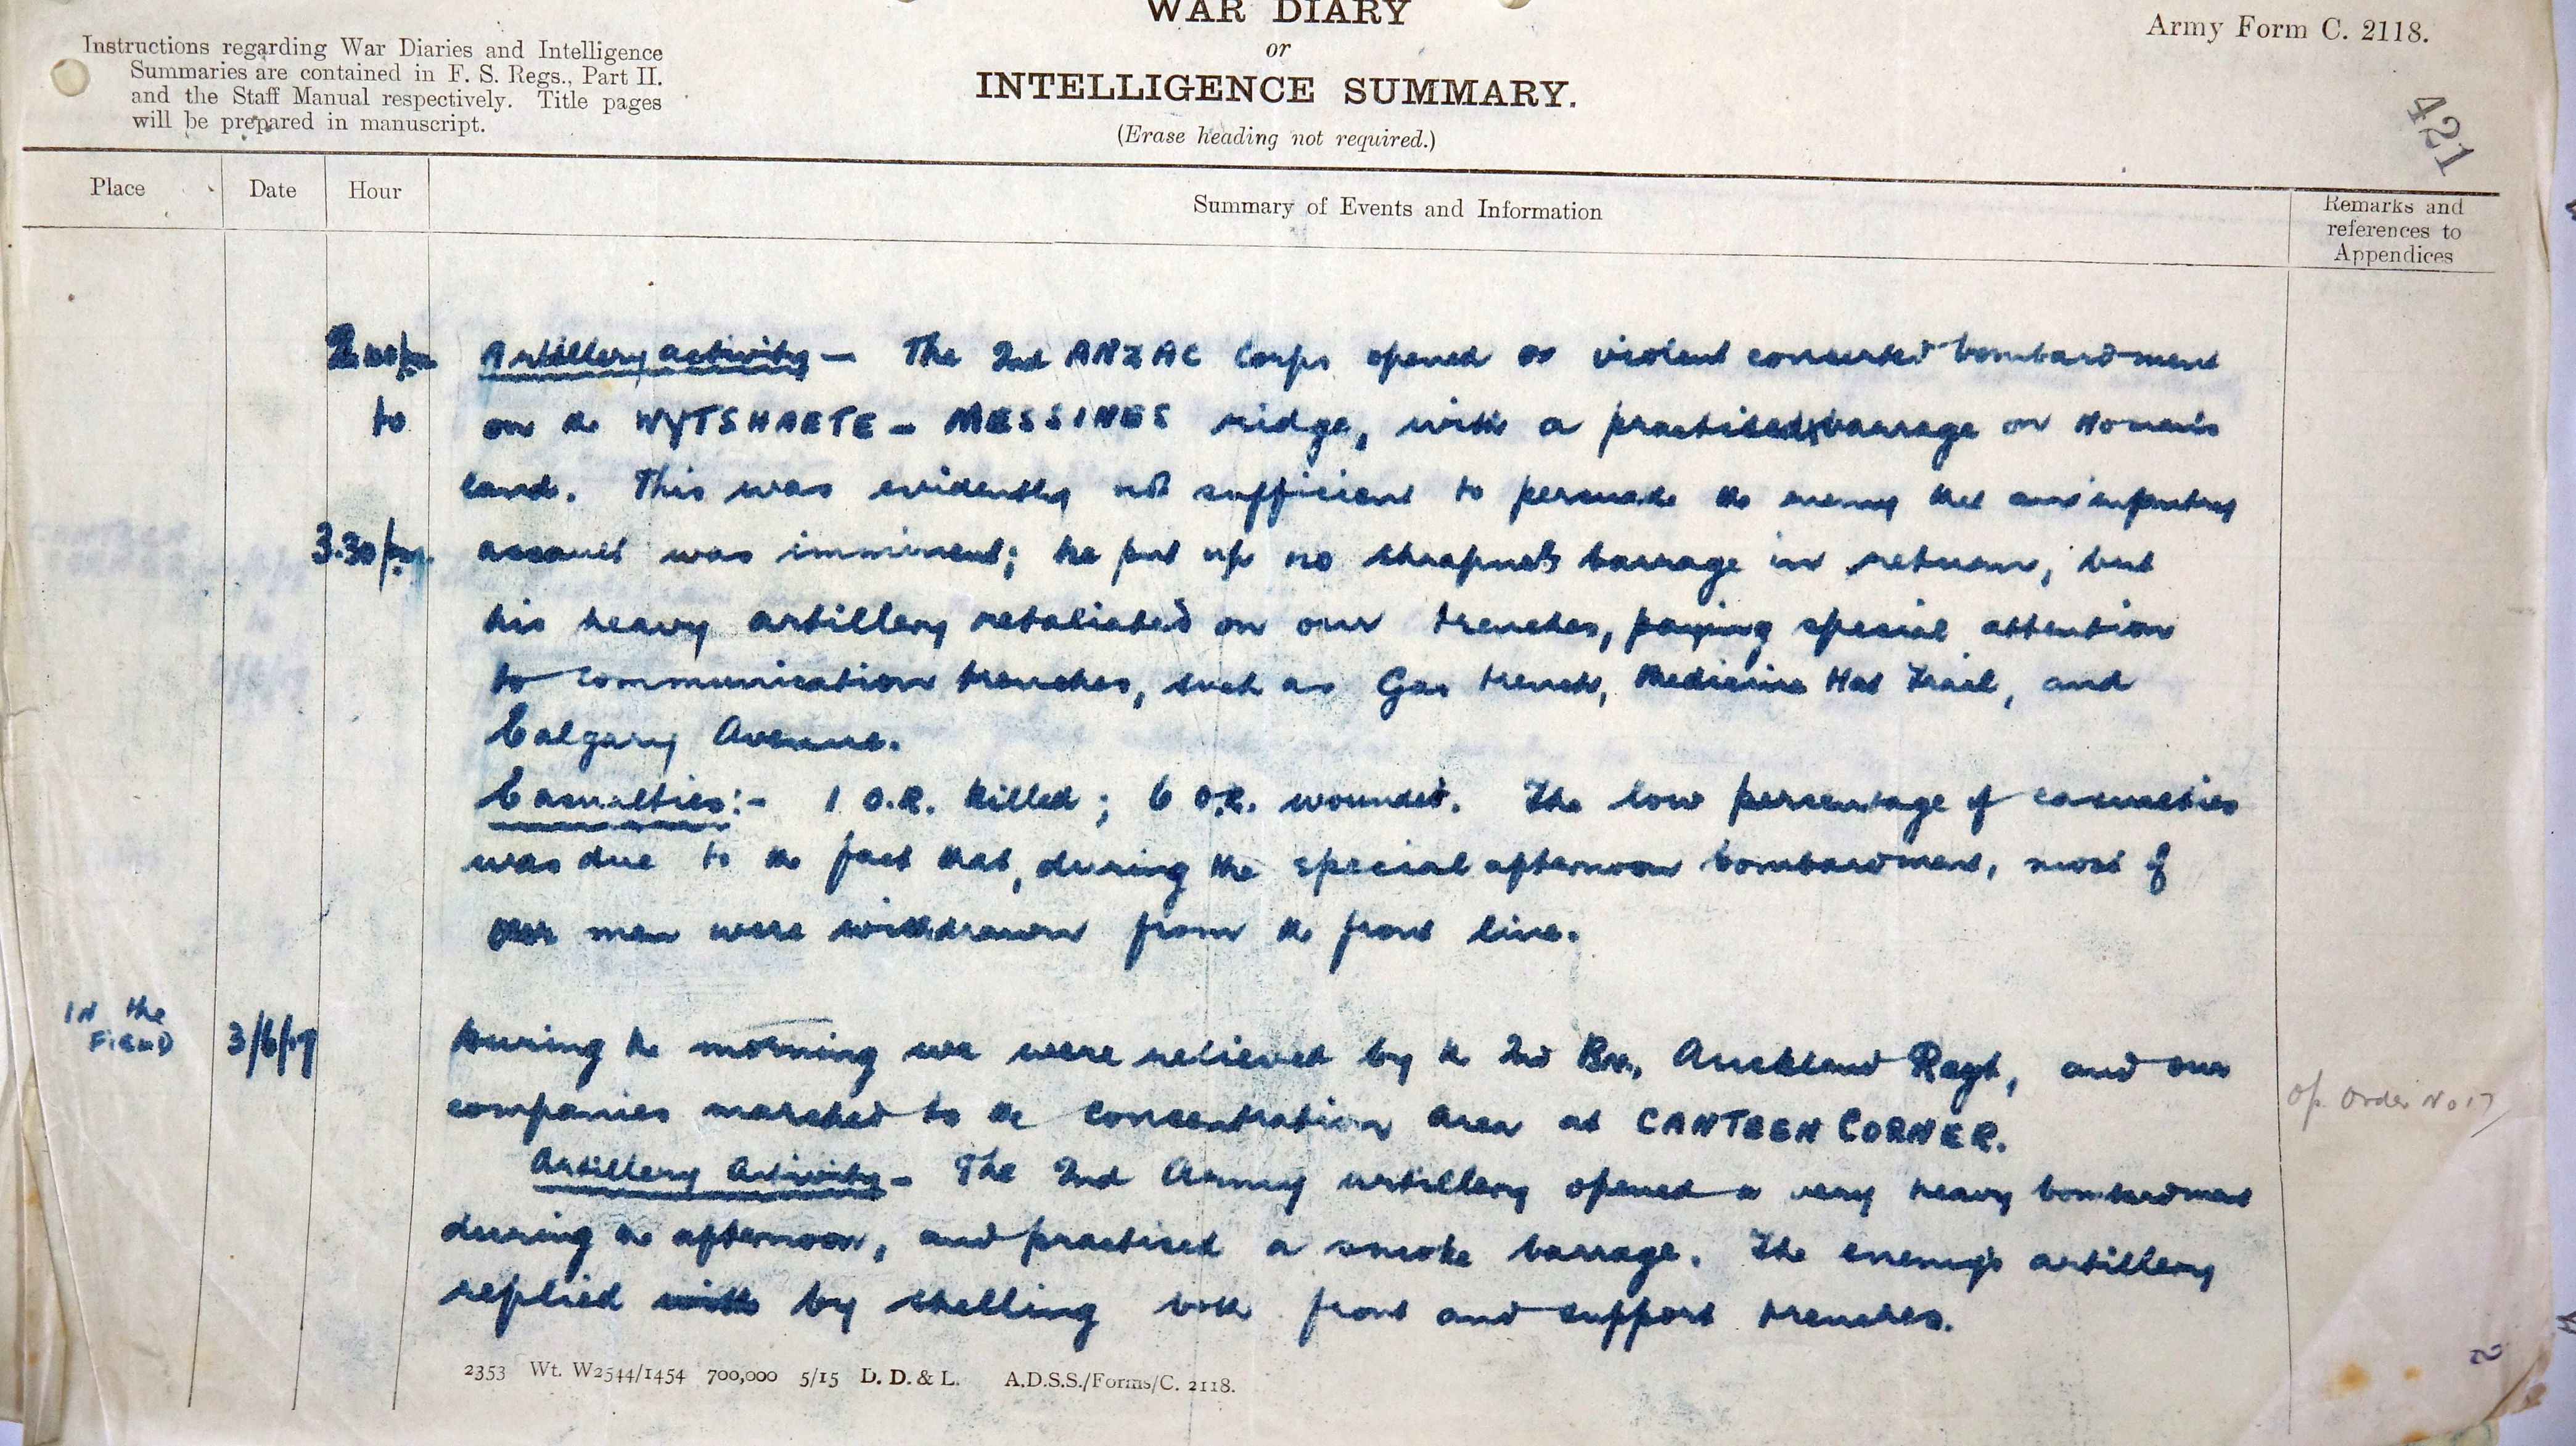 WAR DIARY
or
INTELLIGENCE SUMMARY.
(Erase heading not required.)
Army Form C. 2118.
Instructions regarding War Diaries and Intelligence
Summaries are contained in F. S. Regs., Part II.
and the Staff Manual respectively. Title pages
will be prepared in manuscript.
421
Place Date Hour Summary of Events and Information
Remarks and
references to
Appendices
Artillery activity – The 2nd ANZAC Corps opened a violent concerted bombardment
to on the WYTSHAETE – MESSINES ridge, with a practice barrage on No man's
land. This was evidently not sufficient to persuade the enemy that an infantry
3.30 pm. assault was imminent; he put up no shrapnel barrage in return, but
his heavy artillery retaliated on our trenches, paying special attention
to communication trenches, such as Gas trench, Medicine Hat Trail, and
Calgary Avenue.
Casualties:- 1 O.R. killed; 6 O.R. wounded. The low percentage of casualties
was due to the fact that, during the special afternoon bombardment, most of
our men were withdrawn from the front line.
IN the
FIELD
3/6/17 During the morning we were relieved by the 2nd Bn. Auckland Regt, and our
companies marched to the concentration area at CANTEEN CORNER.
Op. Order No 17
Artillery Activity – The 2nd Army artillery opened a very heavy bombardment
during the afternoon, and practised a smoke barrage. The enemy's artillery
replied with by shelling both front and support trenches.
2353 Wt. W2544/1454 700,000 5/15 D. D. & L. A.D.S.S./Forms/C. 2118.
2